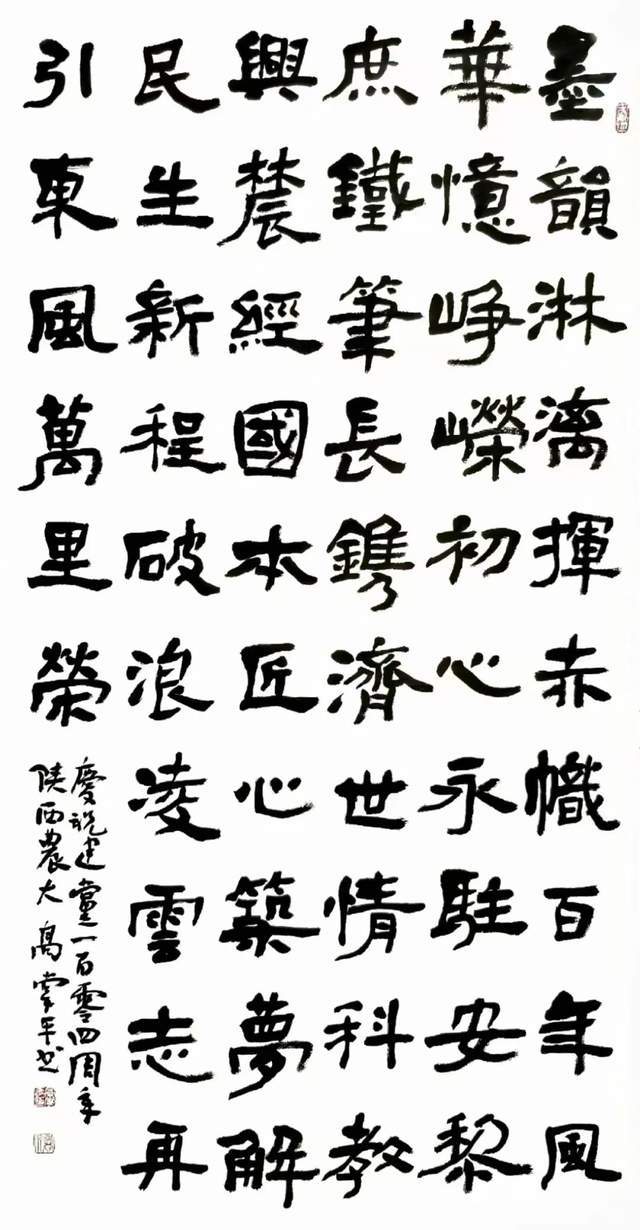 墨韻淋漓揮赤幟百年風
華憶崢嶸初心永駐安黎
庶鐵筆長鎸濟世情科教
興辳經國本匠心築夢解
民生新程破浪凌雲志再
引東風萬里榮
慶祝建黨一百零四周年
陝西農大高平书